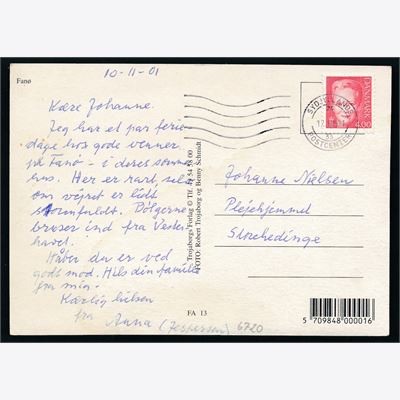 Fanø
10-11-01
Kære Johanne.
Jeg har et par ferie-
dage hos gode venner
på Fanø - i deres somme
hus. Her er rart, sel
om vejret er lidt
stormfuldt. Bølgerne
bruser ind fra Vester-
havet.
Håber du er ved
godt mod. Hils din familie
fra mig.
Kærlig hilsen
fra Anna (Jespersen) 6720
FA 13
Trojaborgs Forlag © Tlf. 75 54 53 00
FOTO: Robert Trojaborg og Benny Schmidt
DANMARK
4.00
SYDJYLLANDS
POSTCENTER
Johanne Nielsen
Plejehjemmet
Storehedinge
5 709848 000016